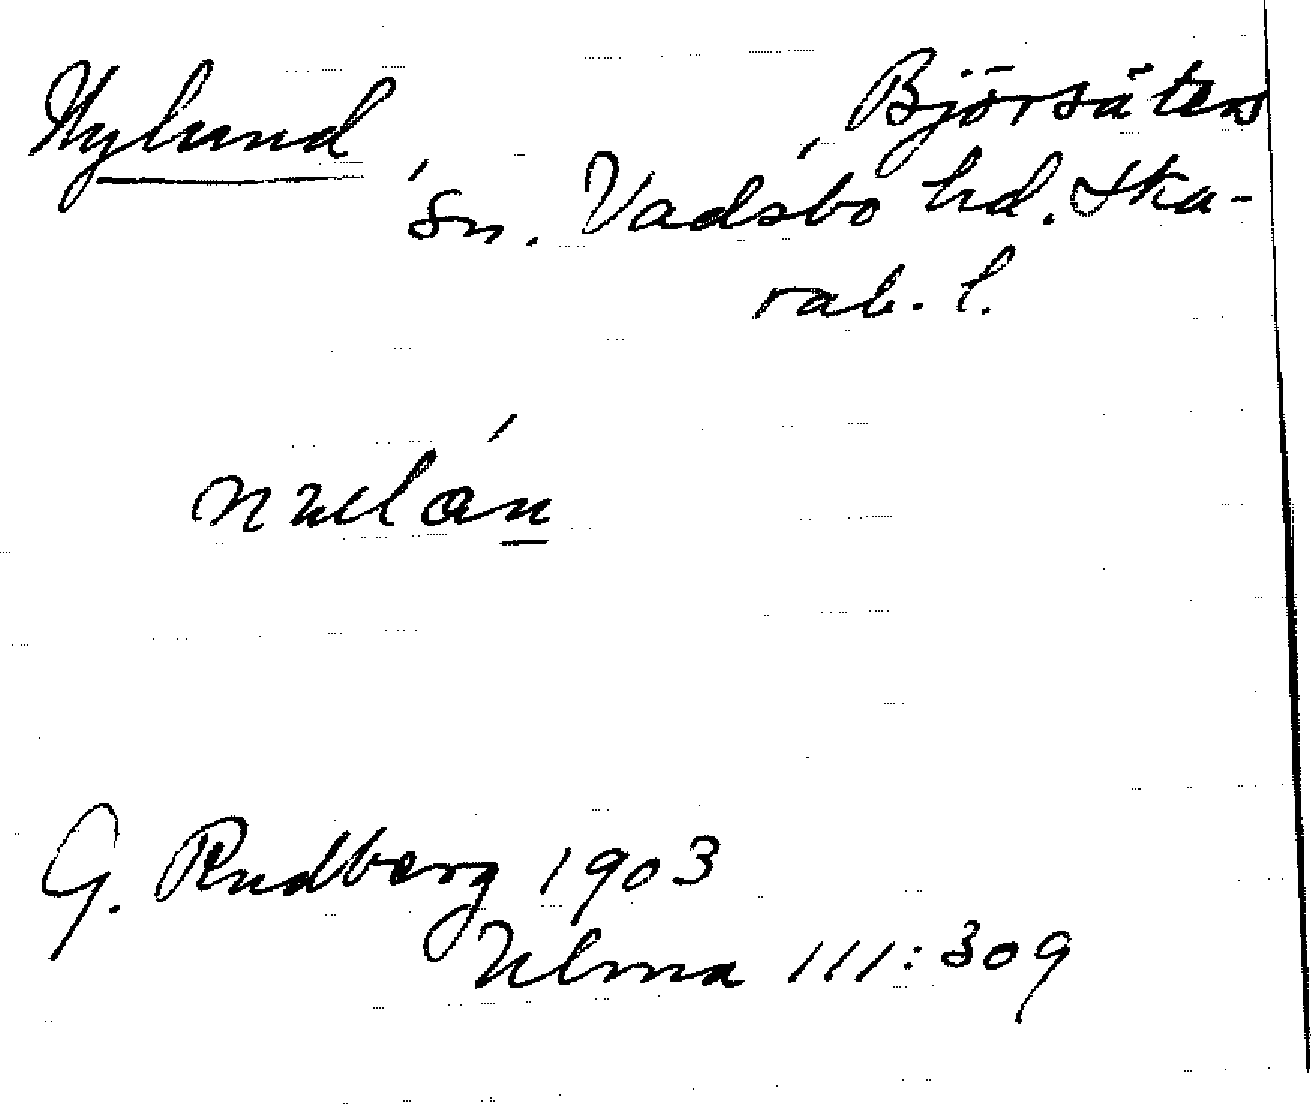 Nylund
Björsäters
sn. Vadsbo hd. Ska-
rab. l.
G. Rudberg 1903
Ulma 111:309